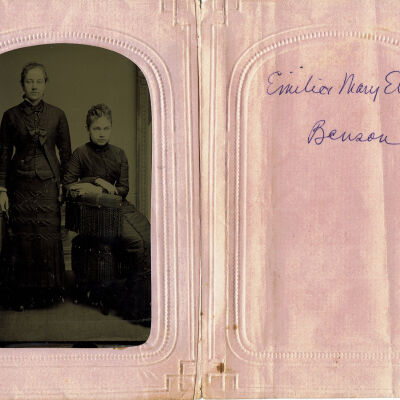 Emilie & Mary El
Benson